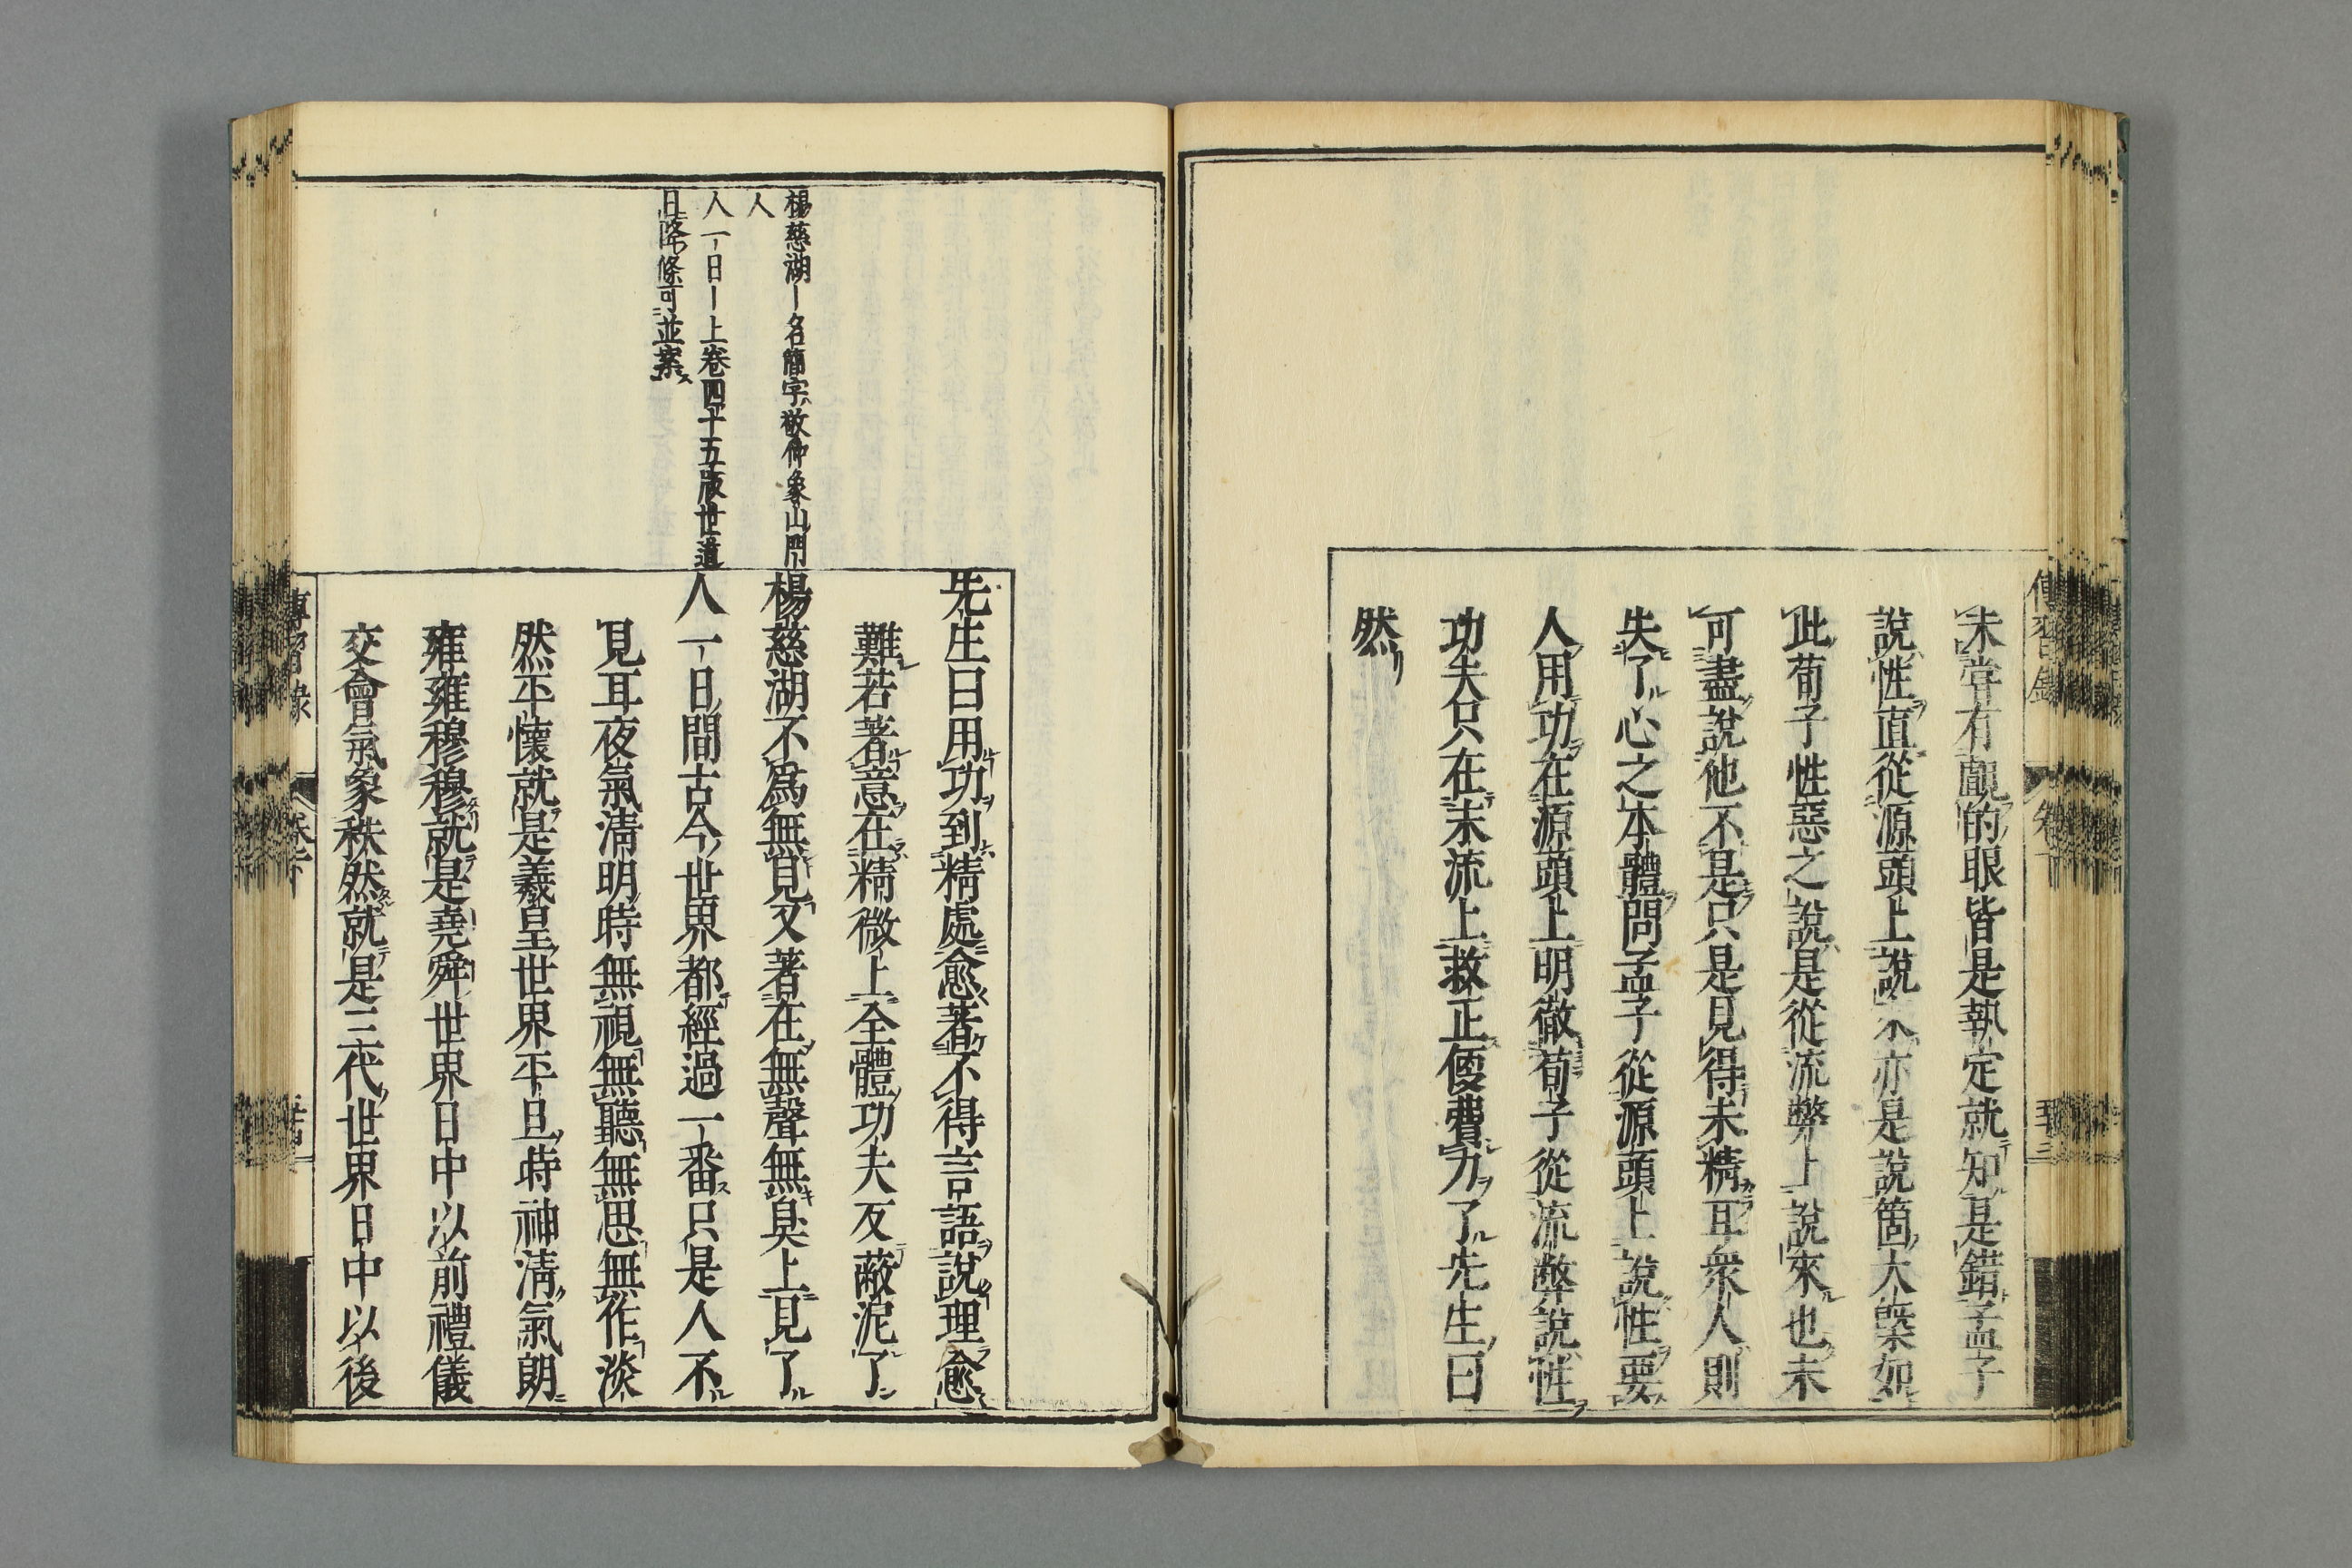 未嘗有覷的眼皆是執定就知是錯孟子
說性直從源頭上說來亦是說箇大槩如
此荀子性惡之說是從流弊上說來也未
可盡說他不是只是見得未精耳衆人則
失了心之本體問孟子從源頭上說性要
人用功在源頭上明徹荀子從流弊說性
功夫只在末流上救正便費力了先生曰
然
楊慈湖ー名簡字敬仲象山門
人
人一日ー上卷四十五版世道
日降條可並案
先生曰用功到精處愈著不得言語說理愈
難若著意在精微上全體功夫反蔽泥了
楊慈湖不爲無見又著在無聲無臭上見了
人一日間古今世界都經過一番只是人不
見耳夜氣淸明時無視無聽無思無作淡
然平懷就是羲皇世界平旦時神淸氣朗
雍雍穆穆就是堯舜世界日中以前禮儀
交會氣象秩然就是三代世界日中以後
傳習錄
卷下